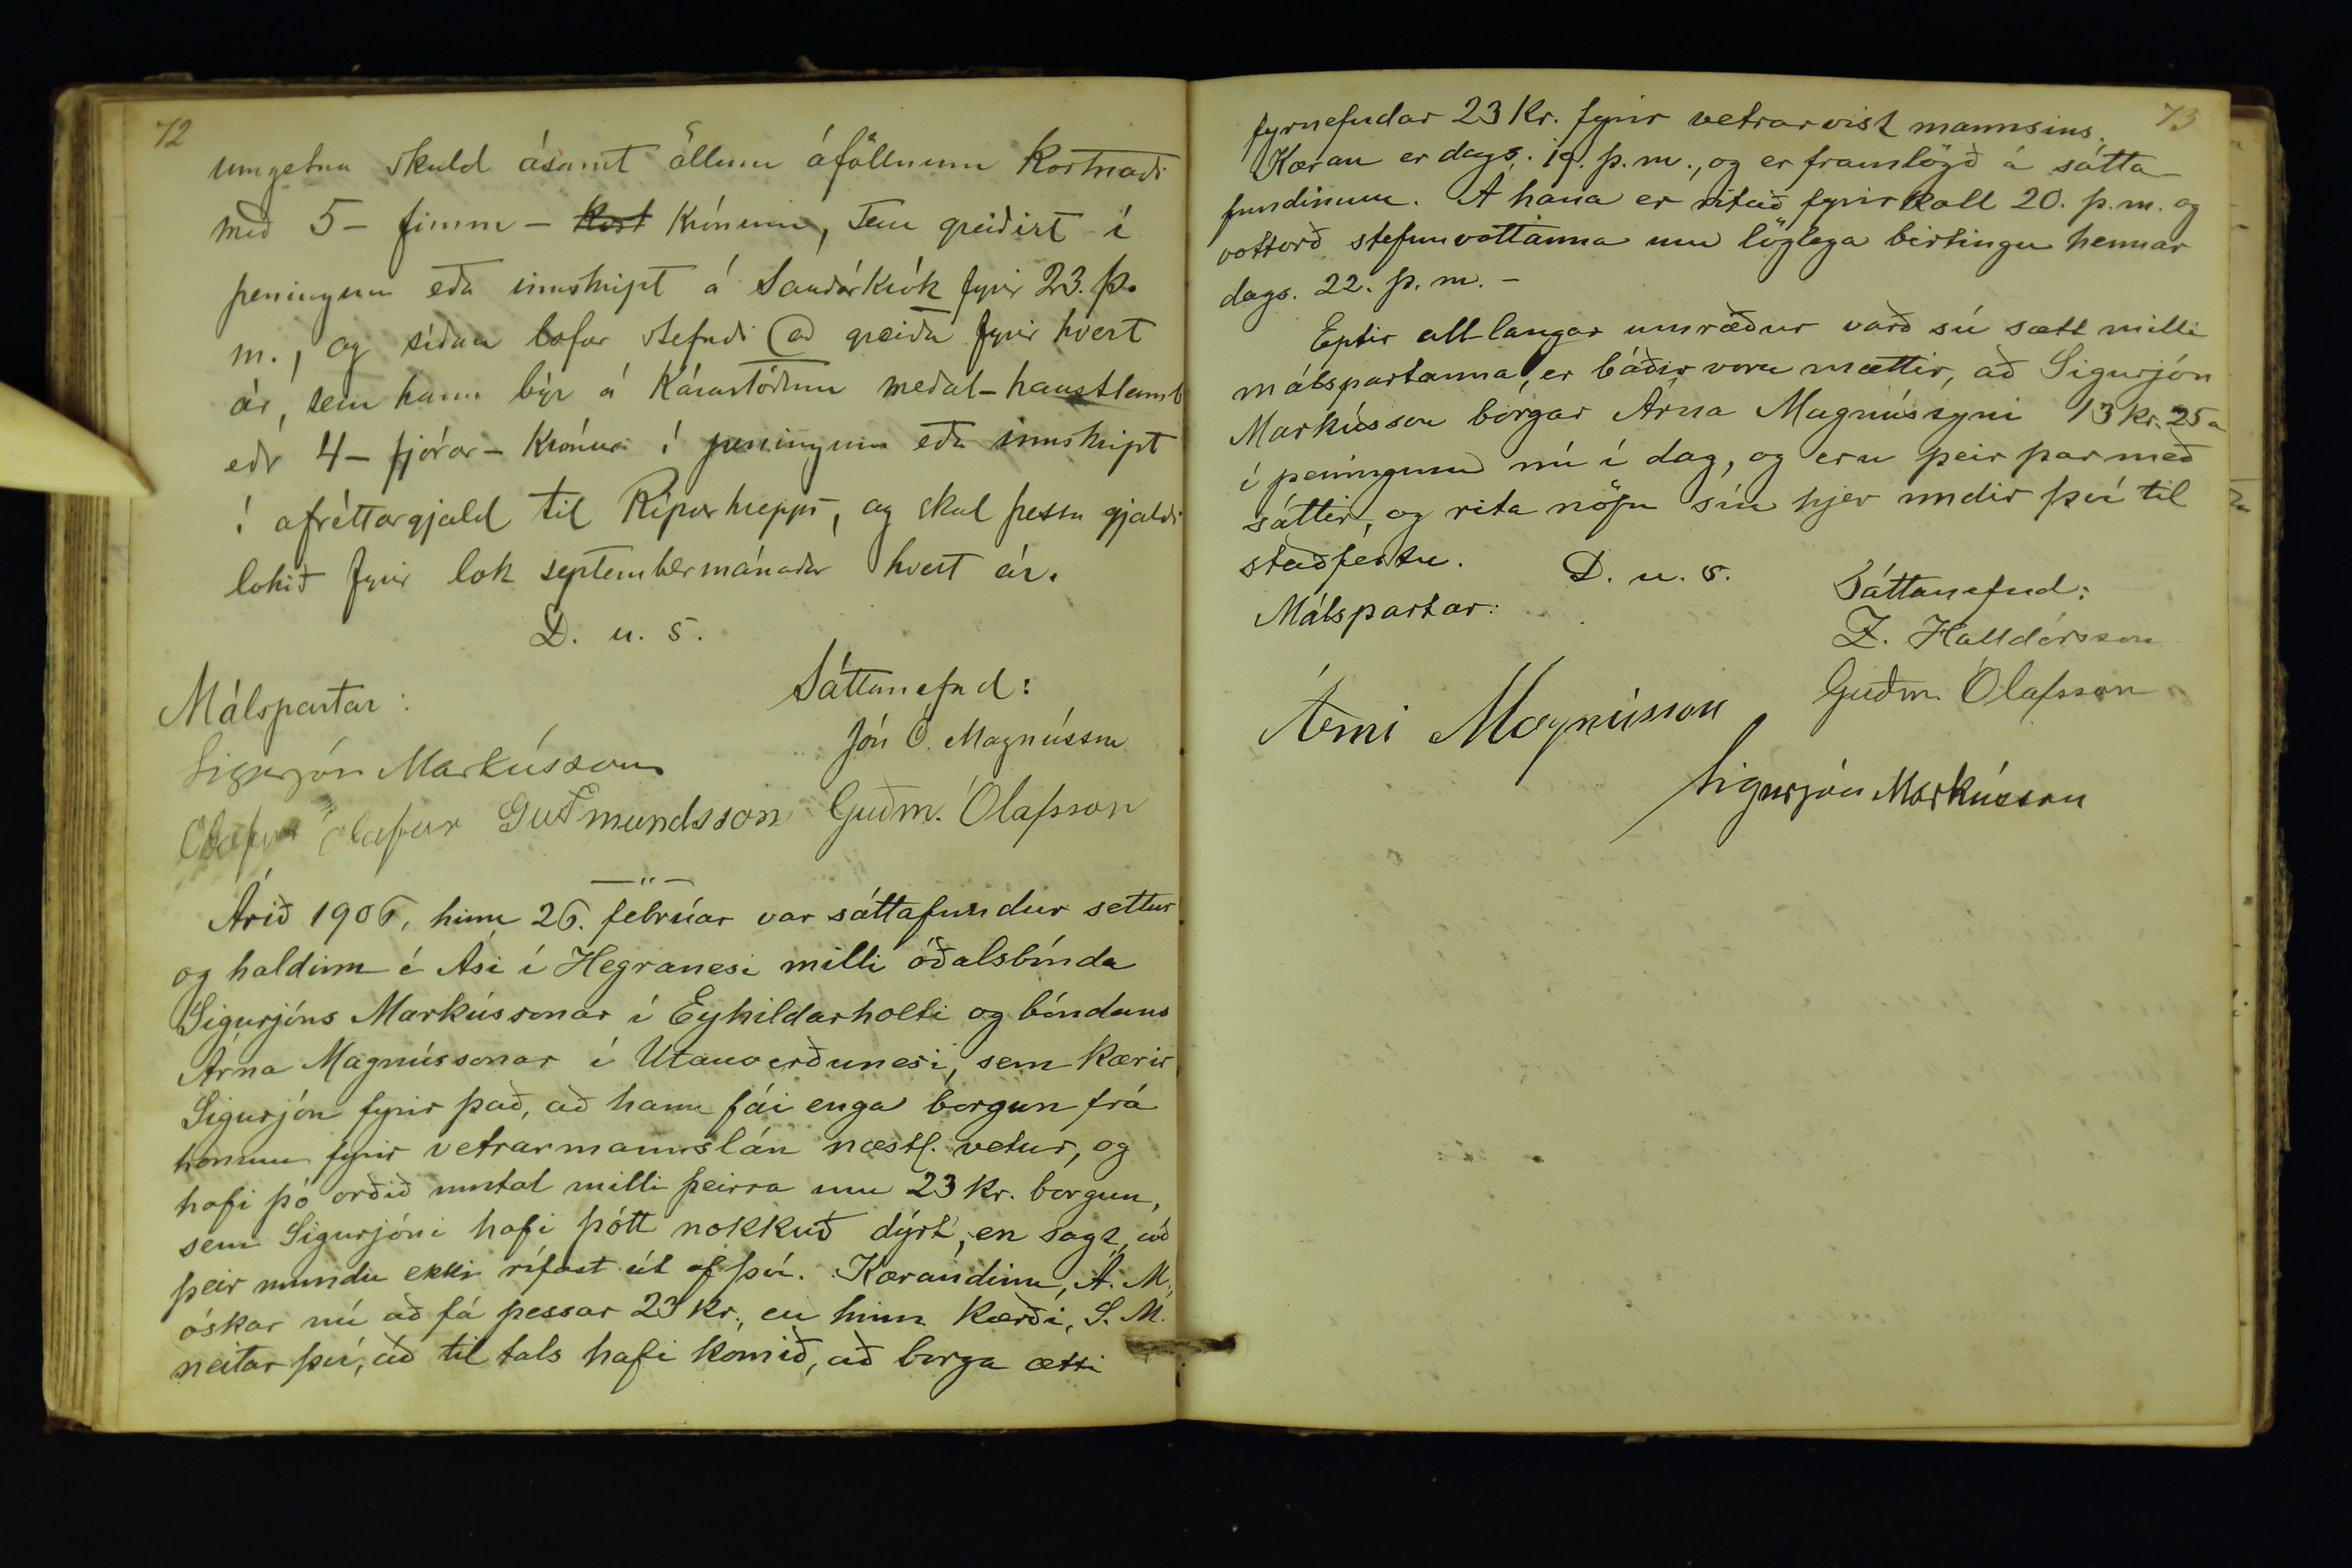 72
umgetnu skuld ásamt öllum áföllnum kostnaði
með 5 - fimm - kost krónum, sem greiðist í
peningum eða innskript á Sauðárkrók fyrir 23. þ.
m., og síðan lofar stefndi að greiða fyrir hvert
ár, sem hann býr á Kárastöðum meðal-haustlamb
eðr 4 - fjórar - krónur í peningum eða innskript
í afréttargjald til Rípurhrepps, og skal þessu gjaldi
lokið fyrir lok septembermánaðar hvert ár.
D. u. s.
Málspartar: Sáttanefnd:
Sigurjón Markússon Jón Ó. Magnússon
Ólafur Ólafur Guðmundsson Guðm. Ólafsson
Árið 1906, hinn 26. febrúar var sáttafundur settur
og haldinn í Ási í Hegranesi milli óðalsbónda
Sigurjóns Markússonar í Eyhildarholti og bóndans
Árna Magnússonar í Utanverðunesi, sem kærir
Sigurjón fyrir það, að hann fái enga borgun frá
honum fyrir vetrarmannslán næstl. vetur, og
hafi þó orðið umtal milli þeirra um 23 kr. borgun,
sem Sigurjóni hafi þótt nokkuð dýrt, en sagt, að
þeir mundu ekki rífast út af því. Kærandinn, Á. M.,
óskar nú að fá þessar 23 kr., en hinn kærði, S. M.
neitar því, að til tals hafi komið, að borga ætti
73
fyrnefndar 23 kr. fyrir vetrarvist mannsins.
Kæran er dags. 19. þ. m., og er framlögð á sátta-
fundinum. Á hana er ritað fyrirkall 20. þ. m. og
vottorð stefnuvottanna um löglega birtingu hennar
dags. 22. þ. m. -
Eptir all-langar umræður varð sú sætt milli
málspartanna, er báðir voru mættir, að Sigurjón
Markússon borgar Árna Magnússyni 13 kr. 25 a
í peningum nú í dag, og eru þeir þar með
sáttir, og rita nöfn sín hjer undir því til
staðfestu. D. u. s.
Málspartar: Sáttanefnd:
Z. Halldórsson
Árni Magnússon Guðm. Ólafsson
Sigurjón Markússon